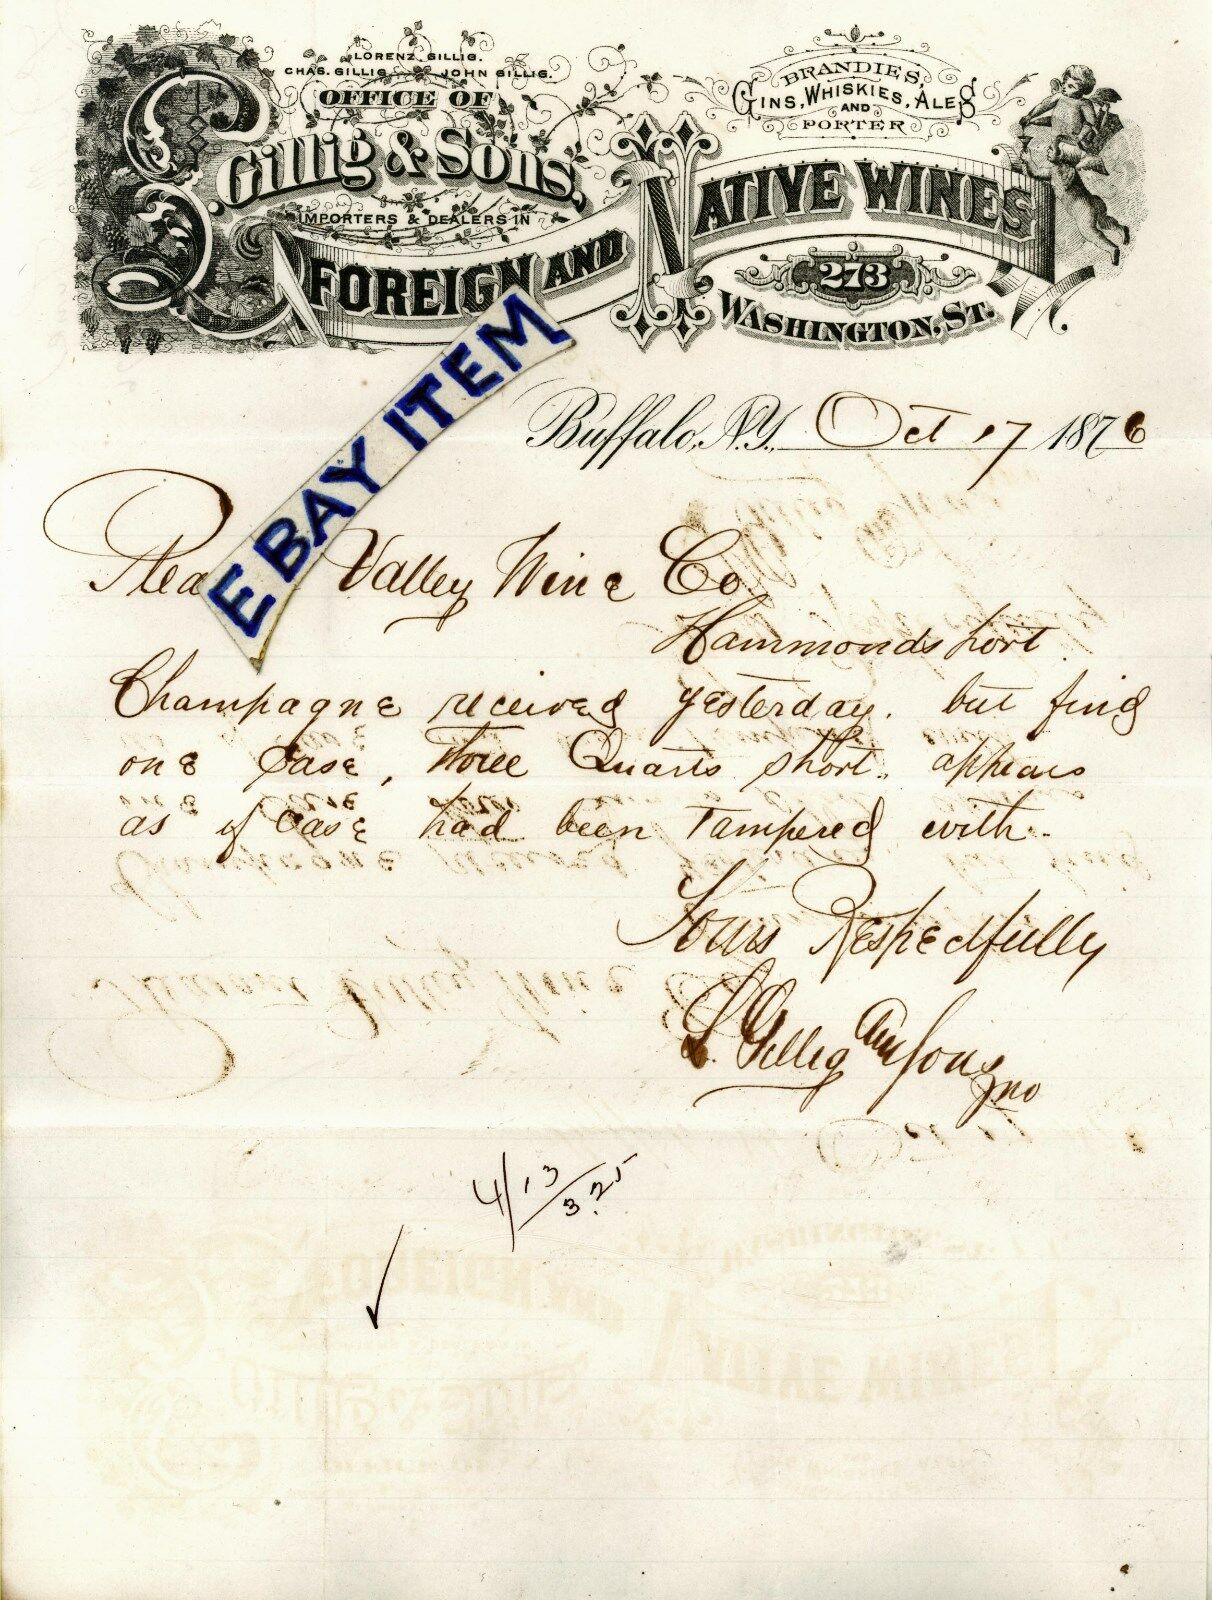 LORENZ GILLIG.
CHAS. GILLIG. JOHN GILLIG.
OFFICE OF
L. Gillig & Sons,
IMPORTERS & DEALERS IN
FOREIGN AND NATIVE WINES
BRANDIES,
GINS, WHISKIES, ALES
AND
PORTER
273
WASHINGTON, ST.
EBAY ITEM
Buffalo, N.Y., Oct 17 1876
Plea Valley Wine Co
Hammondsport.
Champagne received yesterday. but find
one Case, three Quarts short. appears
as if Case had been Tampered with.
Yours Respectfully
L. Gillig and Sons
Jno
4/13
3.25